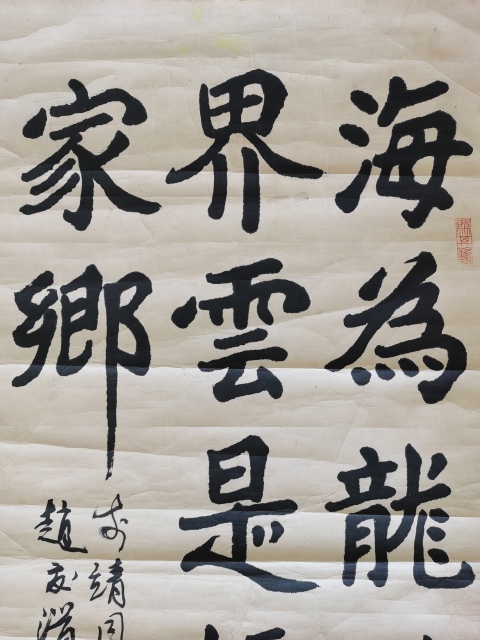 海為龍
界雲是
家鄉
靖同
趙